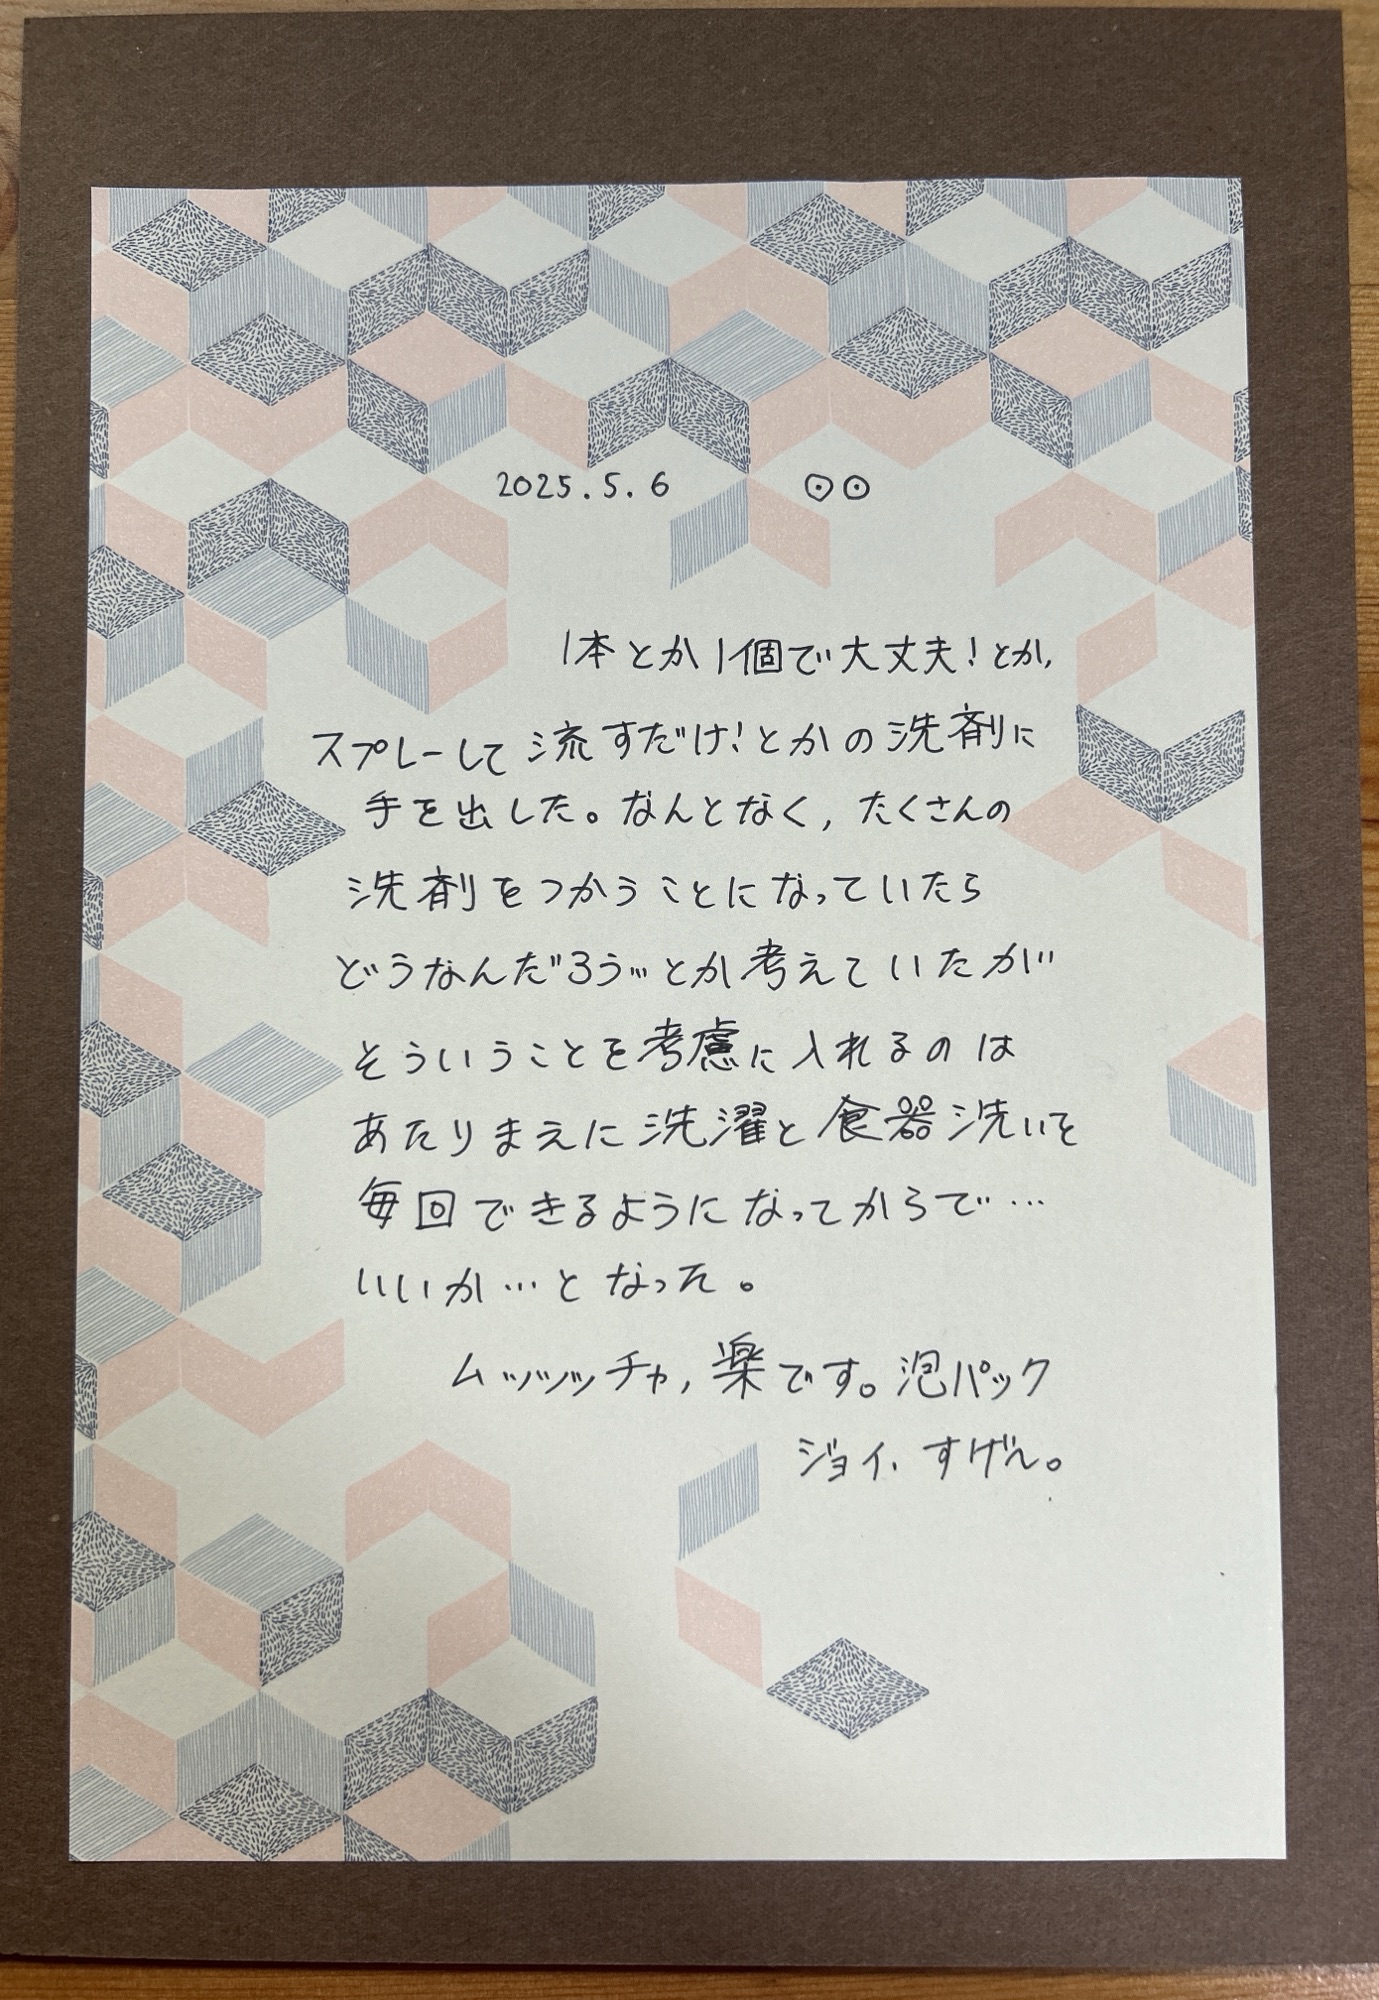 2025.5.6 ⊙⊙
1本とか1個で大丈夫!とか,
スプレーして流すだけ!とかの洗剤に
手を出した。なんとなく,たくさんの
洗剤をつかうことになっていたら
どうなんだろう…とか考えていたが
そういうことを考慮に入れるのは
あたりまえに洗濯と食器洗いを
毎回できるようになってからで…
いいか…となった。
ムッッッッチャ,楽です。泡パック
ジョイ、すげ〜。